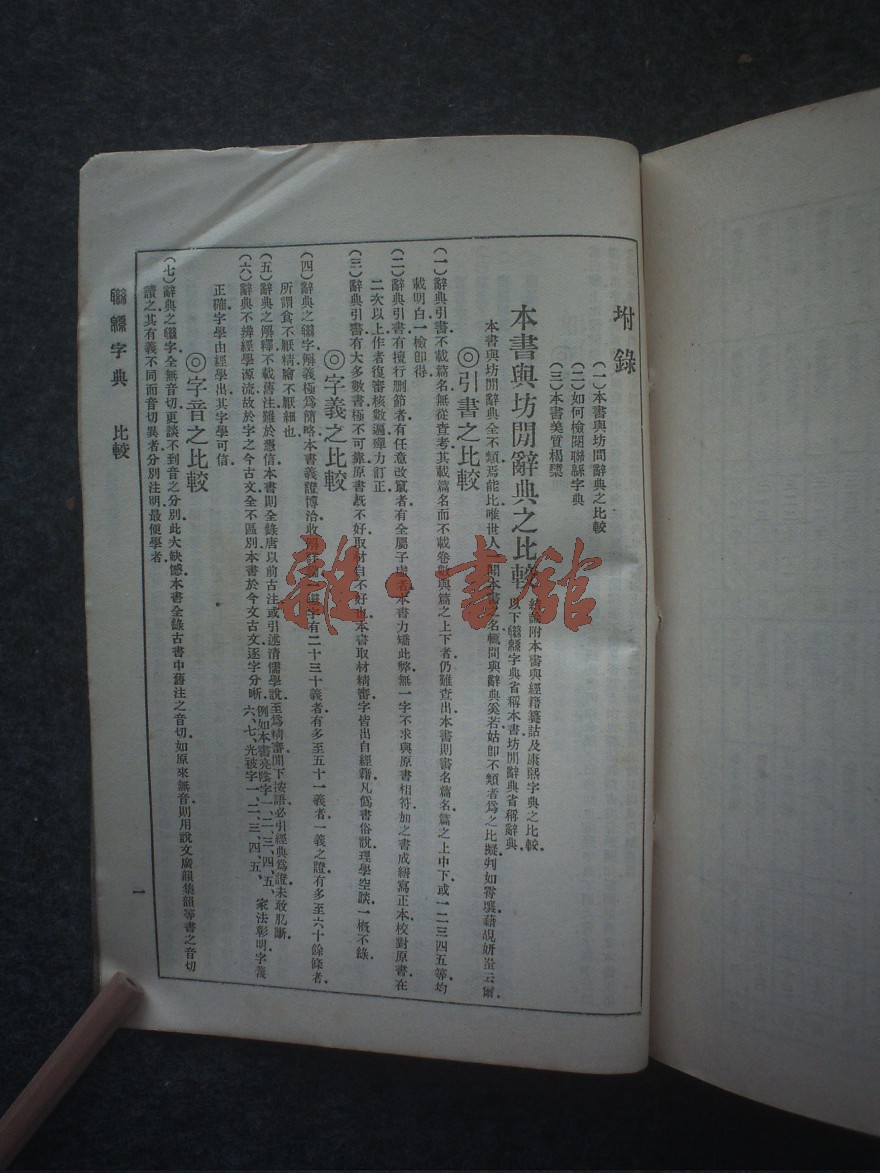 坿錄
(一)本書與坊間辭典之比較
(二)如何檢閱聯緜字典
(三)本書美質楊櫫
本書與坊間辭典之比較
結論附本書與經籍籑詁及康熙字典之比較
以下聯緜字典省稱本書坊間辭典省稱辭典
本書與坊間辭典全不類焉能比唯世人一聞本書之名輒問與辭典奚若姑卽不類者爲之比擬判如霄壤藉覘妍蚩云爾
◎引書之比較
(一)辭典引書不載篇名無從查考其載篇名而不載卷數與篇之上下者仍難查出本書則書名篇名篇之上中下或一二三四五等均
載明白一檢卽得
(二)辭典引書有擅行刪節者有任意改竄者有全屬子虛者本書力矯此弊無一字不求與原書相符加之書成繕寫正本校對原書在
二次以上作者復審核數遍殫力訂正
(三)辭典引書有大多數書極不可靠原書旣不好取材自不好也本書取材精審字皆出自經籍凡僞書俗說理學空談一槪不錄
◎字義之比較
(四)辭典之聯字解義極爲簡略本書義證博洽收 聯字有二十三十義者有多至五十一義者一義之證有多至六十餘條者
所謂食不厭精膾不厭細也
(五)辭典之解釋不載舊注難於憑信本書則全錄唐以前古注或引述清儒學說至爲精審閒下按語必引經典爲證未敢肊斷
(六)辭典不辨經學源流故於字之今古文全不區別本書於今文古文逐字分晰例如本書亮陰字一、二、三、四、五、六、七、光被字一、二、三、四、五、家法彰明字義
正確字學由經學出其字學可信
◎字音之比較
(七)辭典之聯字全無音切更談不到音之分別此大缺憾本書全錄古書中舊注之音切如原來無音則用說文廣韻集韻等書之音切
讀之其有義不同而音切異者分別注明最便學者
聯緜字典 比較
一
雜·書館